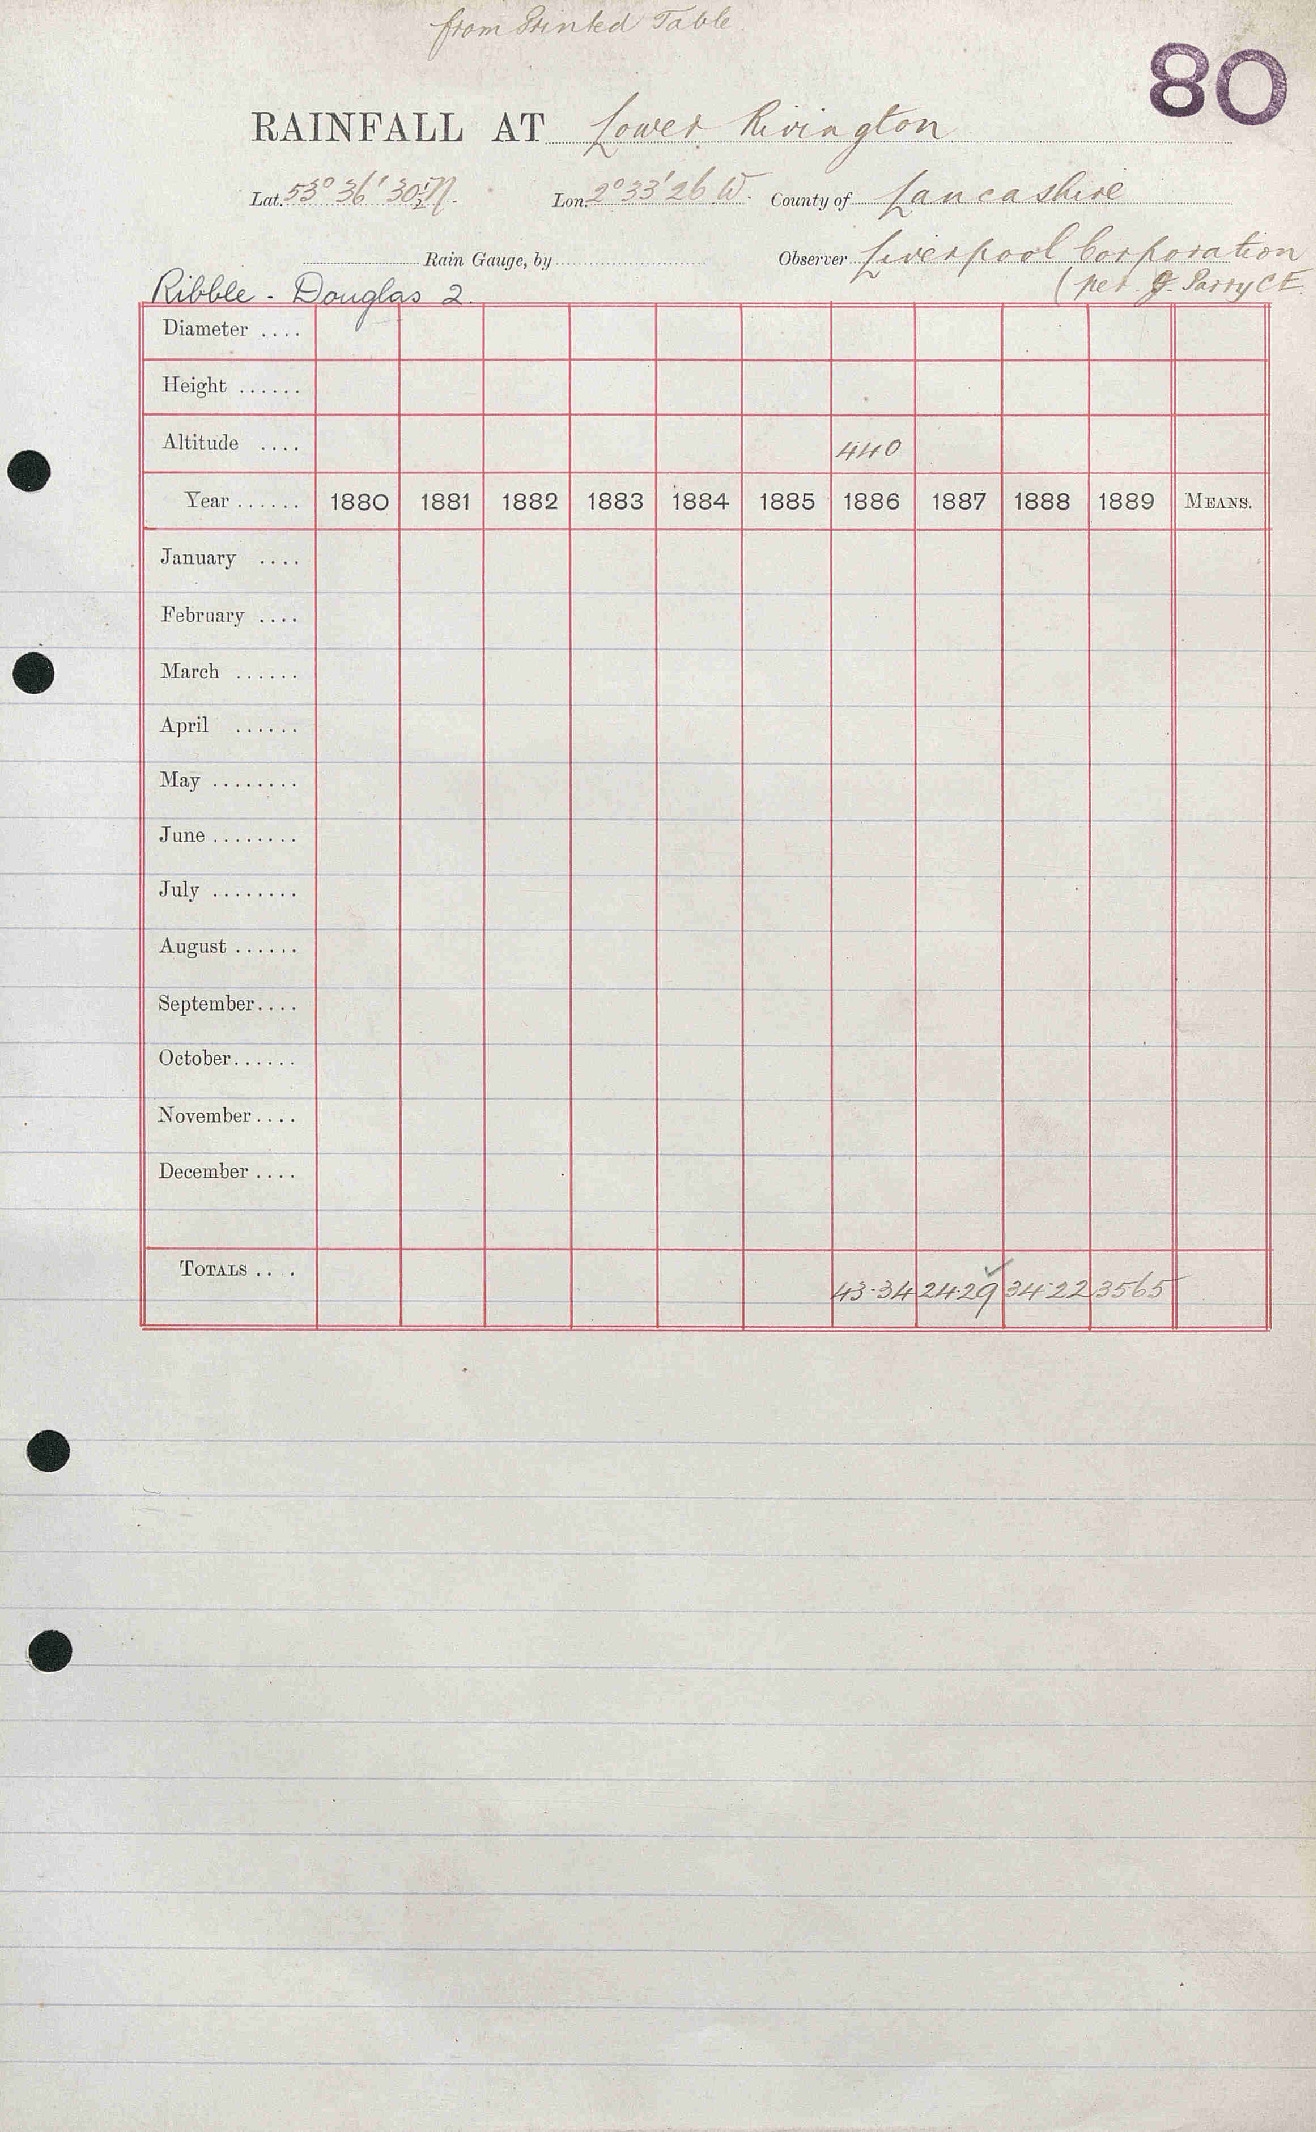 from Printed Table
80
RAINFALL AT Lower Rivington
Lat. 53° 36' 30" N. Lon. 2° 33' 26 W. County of Lancashire
Rain Gauge, by Observer Liverpool Corporation
(per J. Parry C E
Ribble - Douglas 2.
Diameter ....
Height ......
Altitude .... 440
Year ...... 1880 1881 1882 1883 1884 1885 1886 1887 1888 1889 MEANS.
January ....
February ....
March ......
April ......
May ........
June ........
July ........
August ......
September ....
October ......
November ....
December ....
TOTALS .. . 43.34 24.29 34.22 3565